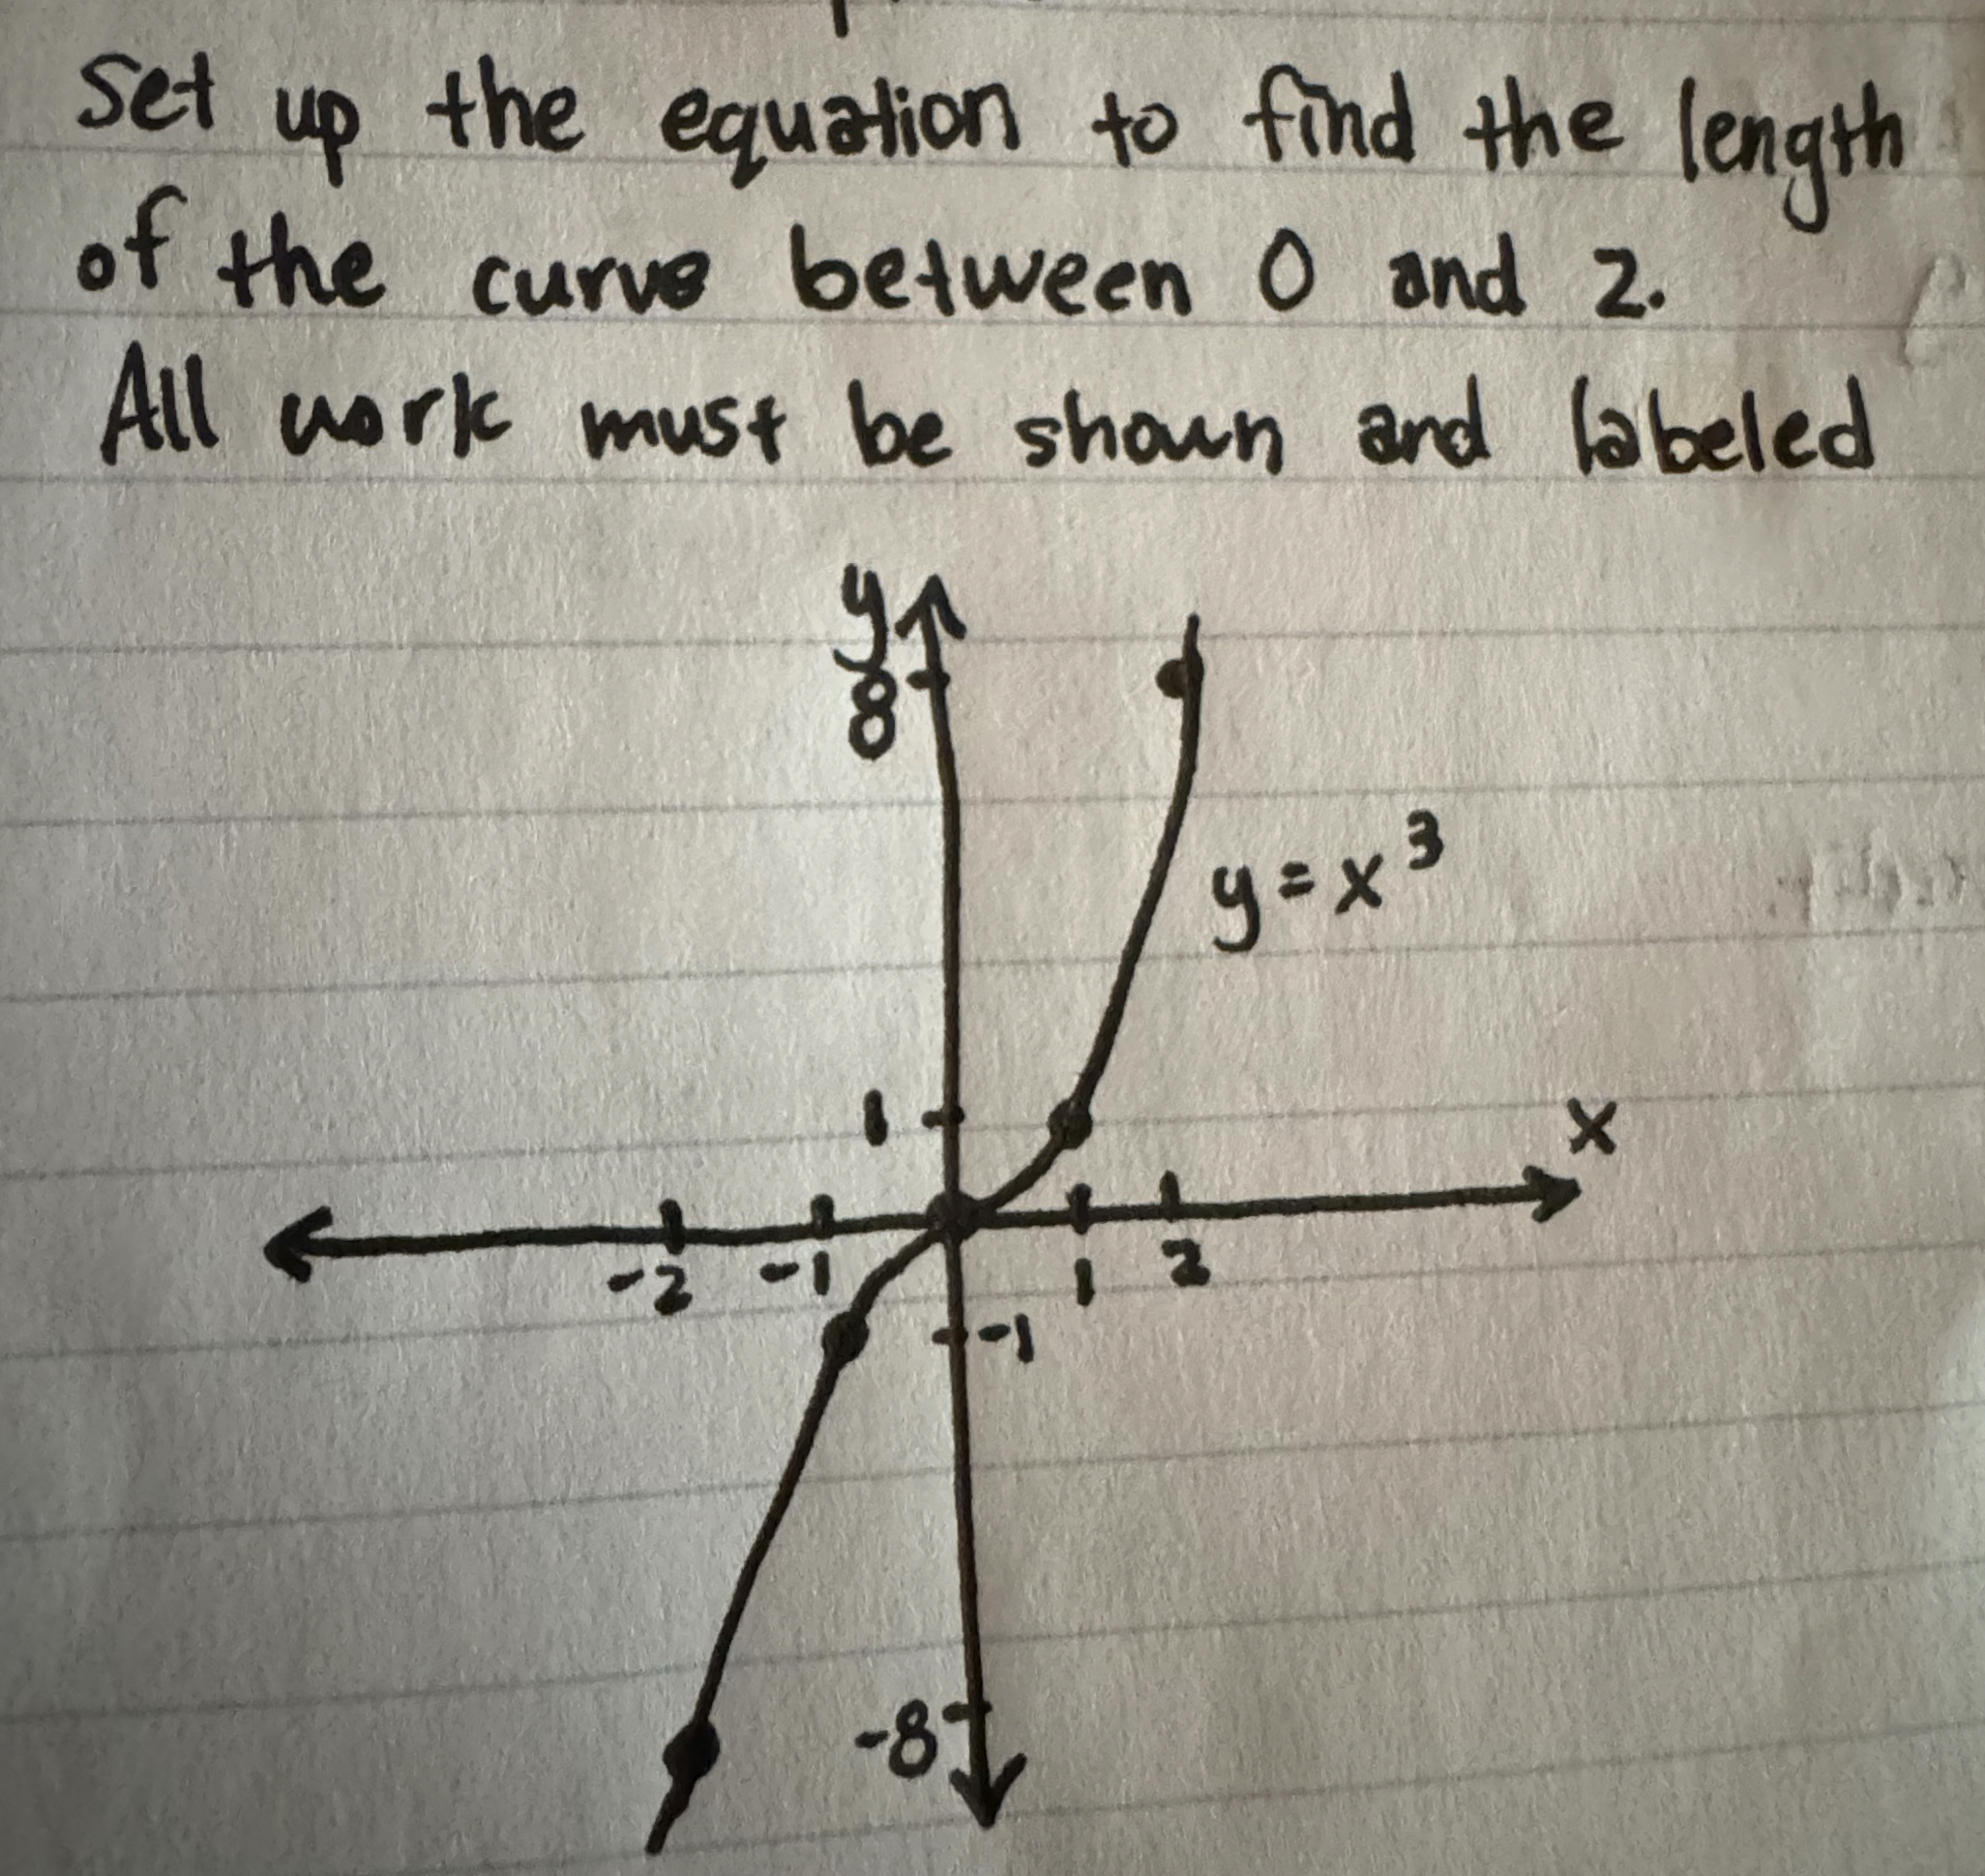 Set up the equation to find the length
of the curve between 0 and 2.
All work must be shown and labeled
y
8
y = x³
1
x
-2 -1 1 2
-1
-8